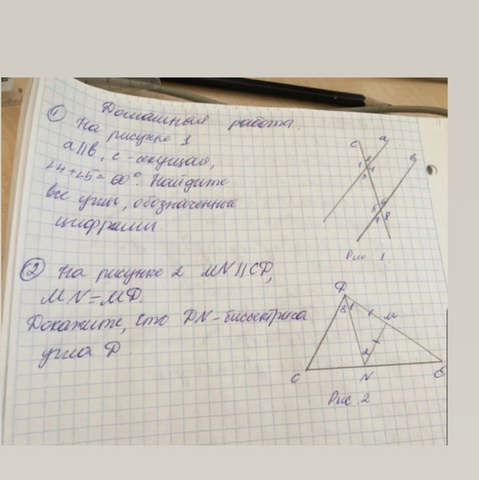 Домашняя работа.
① На рисунке 1
a||b, c-секущая,
∠4+∠5=60°. Найдите
все углы, обозначенные
цифрами
② На рисунке 2 MN||CD,
MN=MD.
Докажите, что DN-биссектриса
угла D.
c a
b
Рис 1
D
M
C N
Рис 2